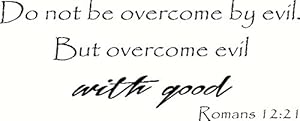 Do not be overcome by evil.
But overcome evil
with good
Romans 12:21